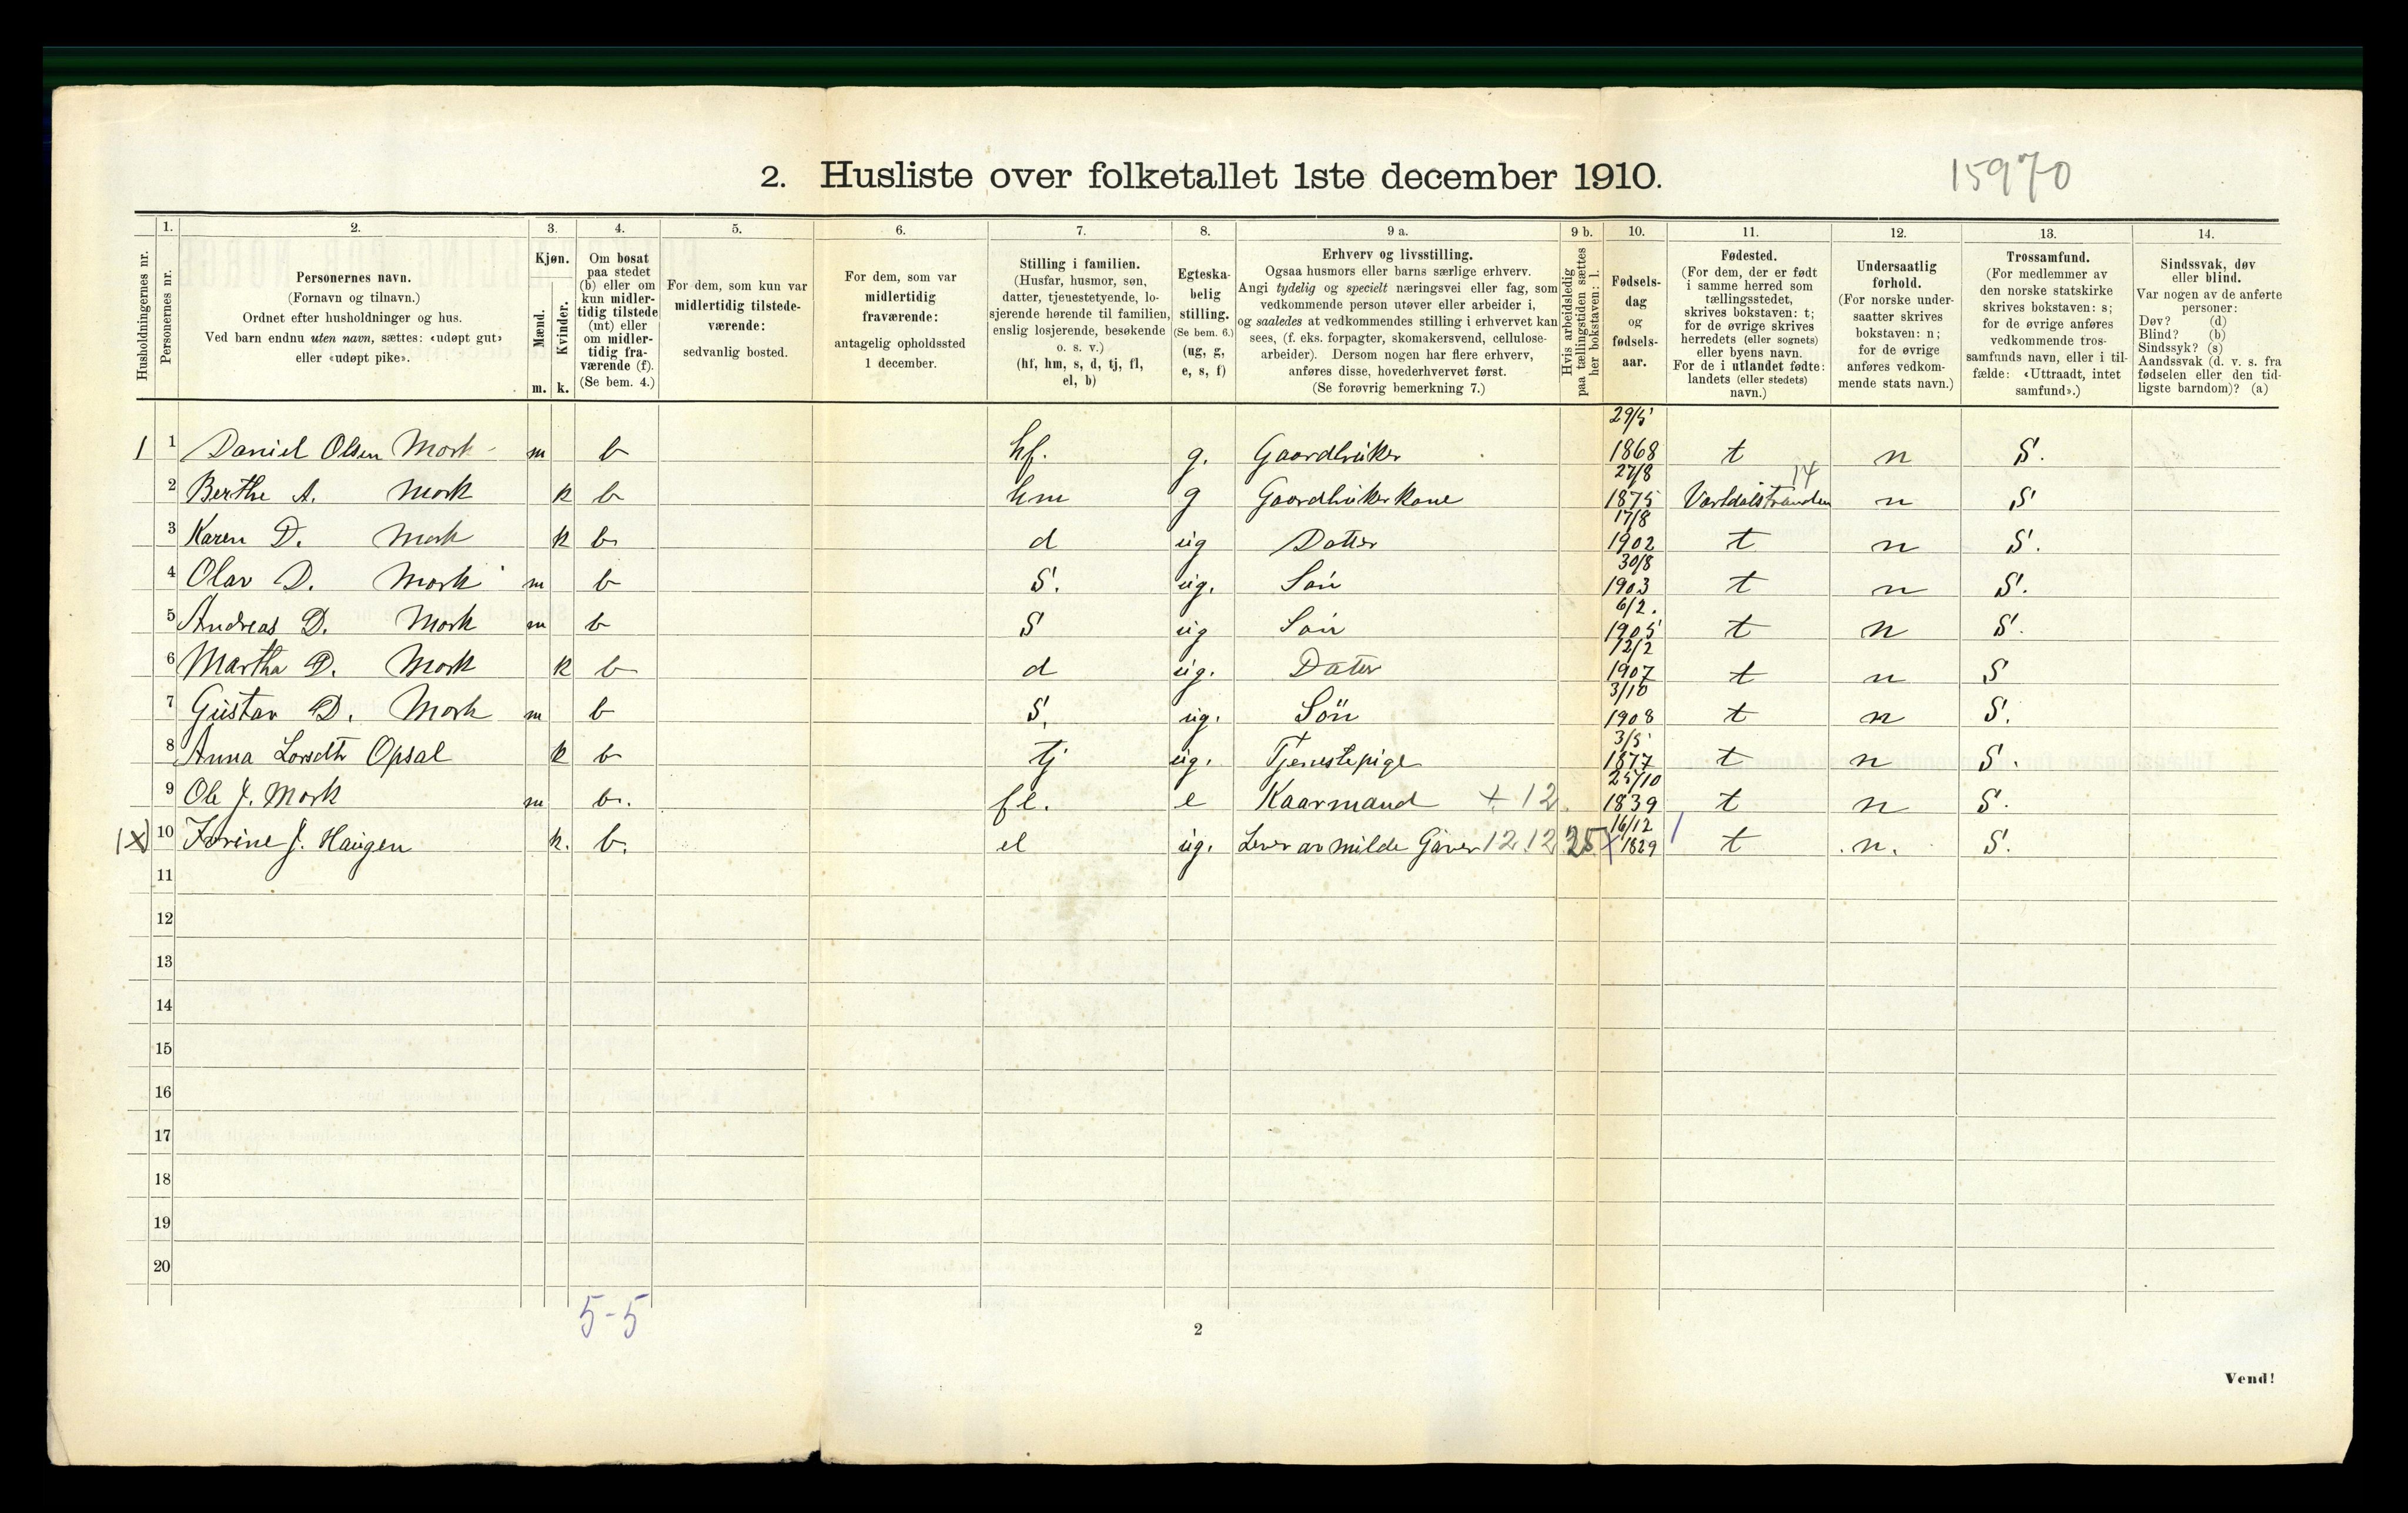 2. Husliste over folketallet 1ste december 1910.
15970
Husholdningernes nr.
1.
Personernes nr.
2.
Personernes navn.
(Fornavn og tilnavn.)
Ordnet efter husholdninger og hus.
Ved barn endnu uten navn, sættes: «udøpt gut»
eller «udøpt pike».
3.
Kjøn.
Mænd.
Kvinder.
m. k.
4.
Om bosat
paa stedet
(b) eller om
kun midler-
tidig tilstede
(mt) eller
om midler-
tidig fra-
værende (f).
(Se bem. 4.)
5.
For dem, som kun var
midlertidig tilstede-
værende:
sedvanlig bosted.
6.
For dem, som var
midlertidig
fraværende:
antagelig opholdssted
1 december.
7.
Stilling i familien.
(Husfar, husmor, søn,
datter, tjenestetyende, lo-
sjerende hørende til familien,
enslig losjerende, besøkende
o. s. v.)
(hf, hm, s, d, tj, fl,
el, b)
8.
Egteska-
belig
stilling.
(Se bem. 6.)
(ug, g,
e, s, f)
9 a.
Erhverv og livsstilling.
Ogsaa husmors eller barns særlige erhverv.
Angi tydelig og specielt næringsvei eller fag, som
vedkommende person utøver eller arbeider i,
og saaledes at vedkommendes stilling i erhvervet kan
sees, (f. eks. forpagter, skomakersvend, cellulose-
arbeider). Dersom nogen har flere erhverv,
anføres disse, hovederhvervet først.
(Se forøvrig bemerkning 7.)
9 b.
Hvis arbeidsledig
paa tællingstiden sættes
her bokstaven: l.
10.
Fødsels-
dag
og
fødsels-
aar.
11.
Fødested.
(For dem, der er født
i samme herred som
tællingsstedet,
skrives bokstaven: t;
for de øvrige skrives
herredets (eller sognets)
eller byens navn.
For de i utlandet fødte:
landets (eller stedets)
navn.)
12.
Undersaatlig
forhold.
(For norske under-
saatter skrives
bokstaven: n;
for de øvrige
anføres vedkom-
mende stats navn.)
13.
Trossamfund.
(For medlemmer av
den norske statskirke
skrives bokstaven: s;
for de øvrige anføres
vedkommende tros-
samfunds navn, eller i til-
fælde: «Uttraadt, intet
samfund».)
14.
Sindssvak, døv
eller blind.
Var nogen av de anførte
personer:
Døv? (d)
Blind? (b)
Sindssyk? (s)
Aandssvak (d. v. s. fra
fødselen eller den tid-
ligste barndom)? (a)
1 1 Daniel Olsen Mork m b hf. g. Gaardbruker 29/5 1868 t n S.
2 Berthe A. Mork k b hm g Gaardbrukerkone 27/8 1875 Vartdalstranden 14 n S
3 Karen D. Mork k b d ug Datter 17/8 1902 t n S.
4 Olav D. Mork m b S. ug. Søn 30/8 1903 t n S.
5 Andreas D. Mork m b S ug Søn 6/2. 1905 t n S.
6 Martha D. Mork k b d ug. Datter 12/2 1907 t n S
7 Gustav D. Mork m b S. ug. Søn 3/10 1908 t n S.
8 Anna Larsdtr Opsal k b tj ug. Tjenestepige 3/5 1877 t n S.
9 Ole J. Mork m b. fl. e Kaarmand + 12 25/10 1839 t n S.
(x) 10 J. Haugen k. b. el ug. Lever av milde Gaver 12.12 35 x 16/12 1829 t n. S.
11
12
13
14
15
16
17
18
19
20
5-5
2
Vend!